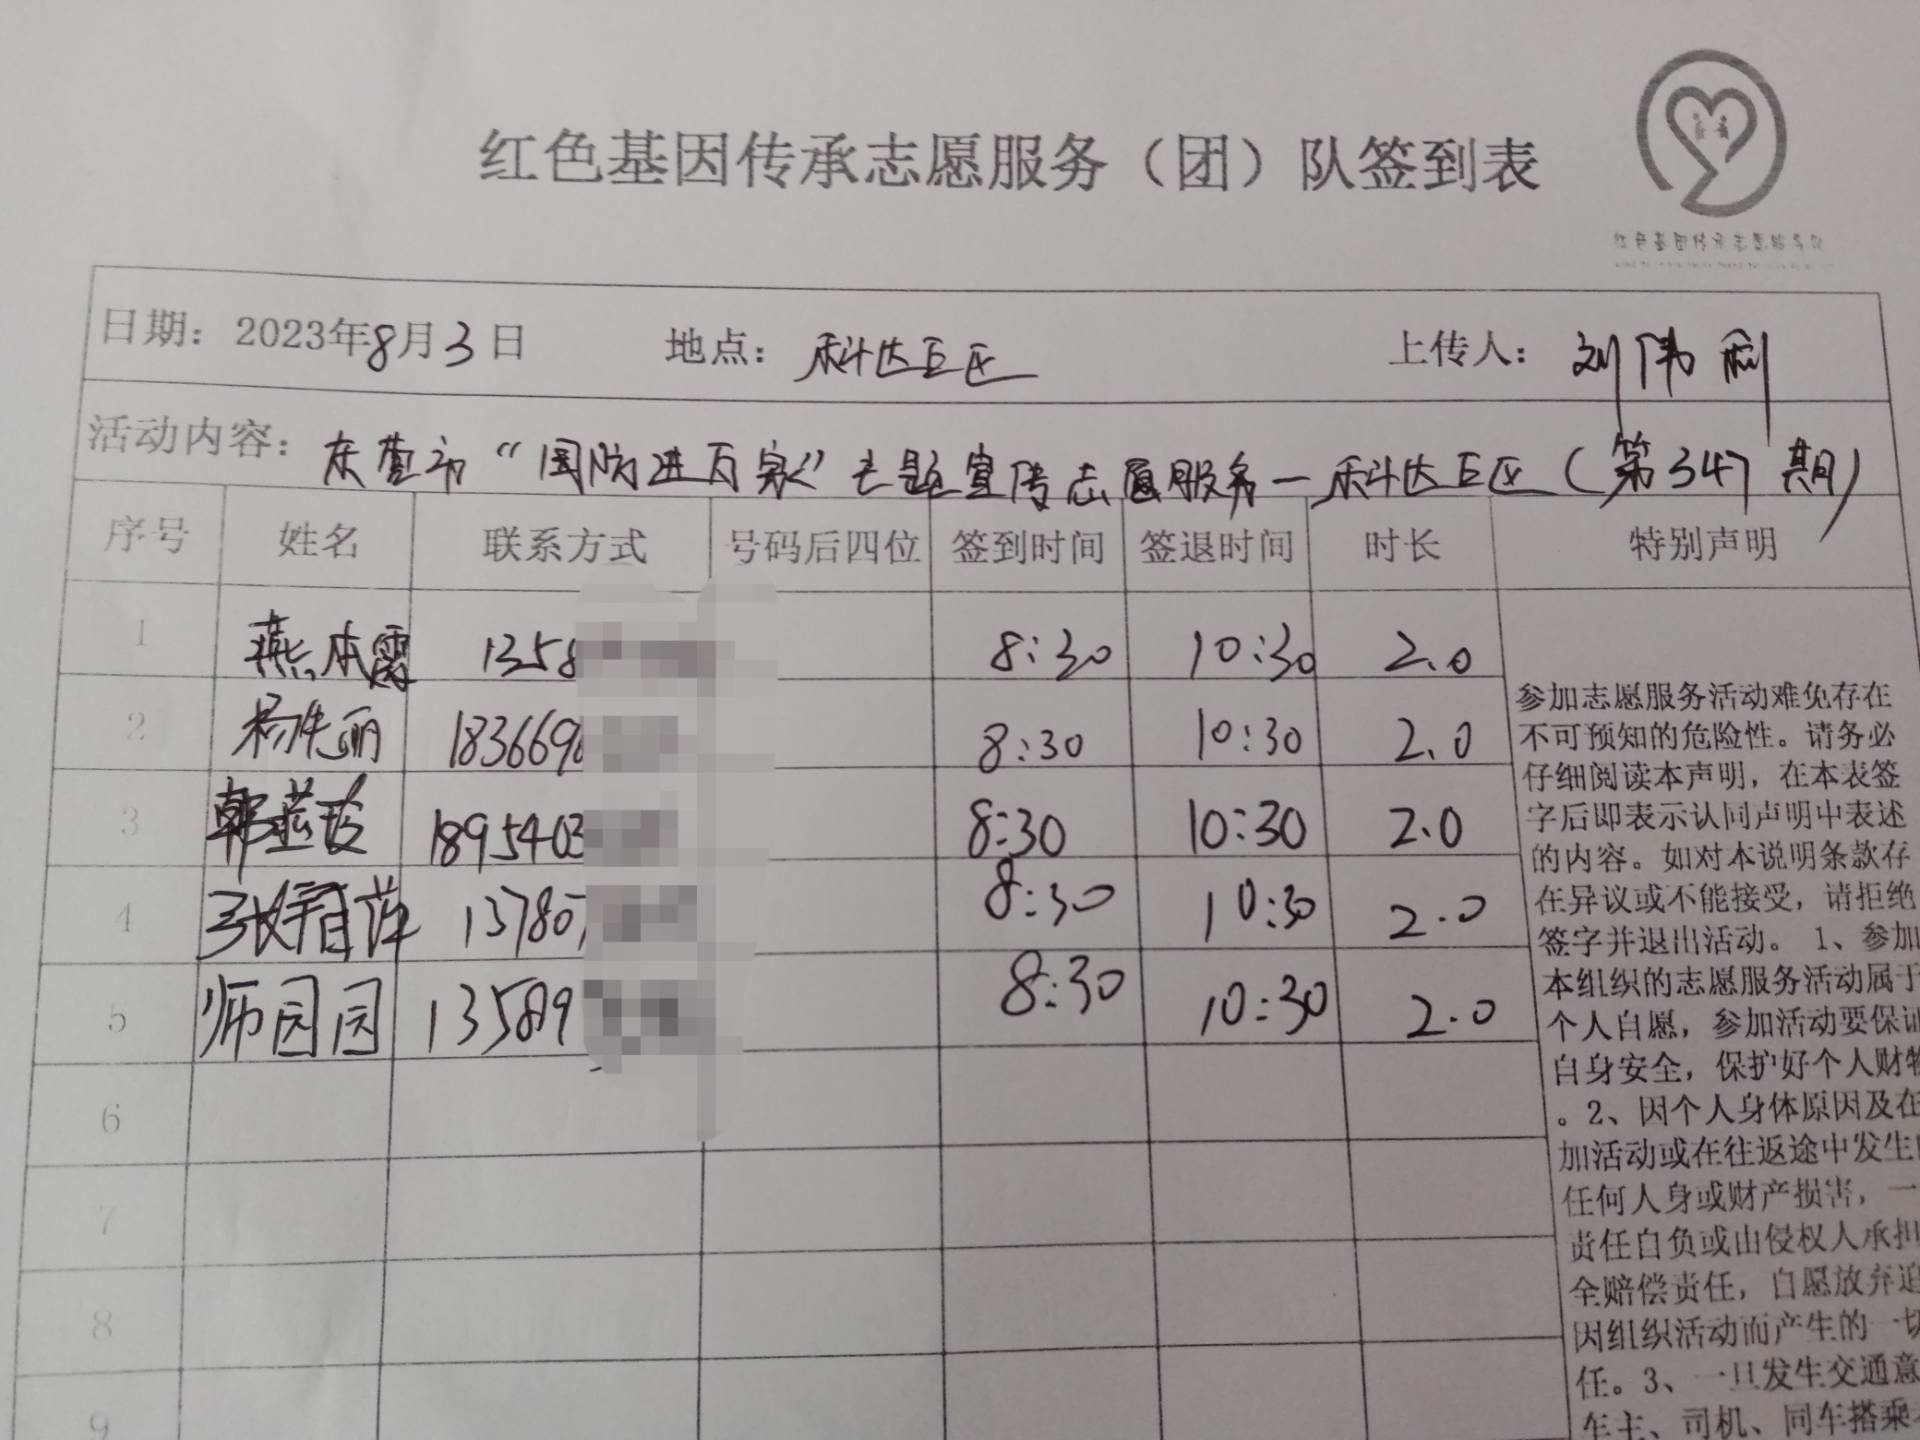 红色基因传承志愿服务（团）队签到表
红色基因传承志愿服务队
日期：2023年8月3日 地点：科达巨区 上传人：刘伟利
活动内容：东营市“国防进万家”主题宣传志愿服务—科达巨区（第347期）
序号 姓名 联系方式 号码后四位 签到时间 签退时间 时长 特别声明
1 燕本霞 1358 8:30 10:30 2.0
2 杨 丽 183669 8:30 10:30 2.0
3 韩 玲 1895403 8:30 10:30 2.0
4 张 萍 13780 8:30 10:30 2.0
5 师园园 13589 8:30 10:30 2.0
6
7
8
9
参加志愿服务活动难免存在
不可预知的危险性。请务必
仔细阅读本声明，在本表签
字后即表示认同声明中表述
的内容。如对本说明条款存
在异议或不能接受，请拒绝
签字并退出活动。 1、参加
本组织的志愿服务活动属于
个人自愿，参加活动要保证
自身安全，保护好个人财物
。2、因个人身体原因及在
加活动或在往返途中发生
任何人身或财产损害，一
责任自负或由侵权人承担
全赔偿责任，自愿放弃追
因组织活动而产生的一切
任。3、一旦发生交通意
车主、司机、同车搭乘